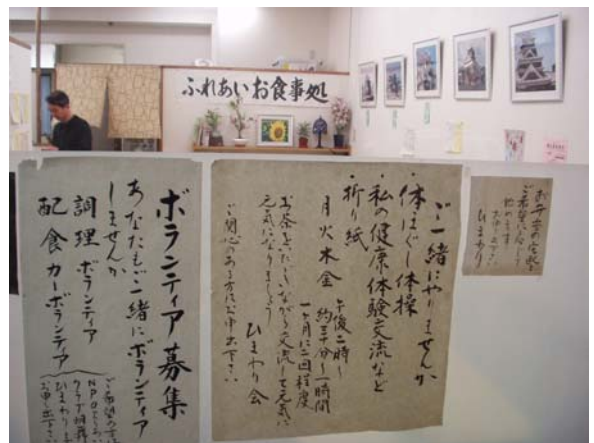 ふれあいお食事処
ボランティア募集
あなたもご一緒にボランティア
しませんか
調理ボランティア
配食カーボランティア
ご一緒にやりませんか
・体ほぐし体操
・私の健康体験交流など
・折り紙
月火木金
午後二時〜
約三十分〜一時間
一ヶ月に二回程度
お茶をいただきながら交流して元気に
元気になりましょう
ひまわり会
ご関心のある方はお申出下さい
ひまわり